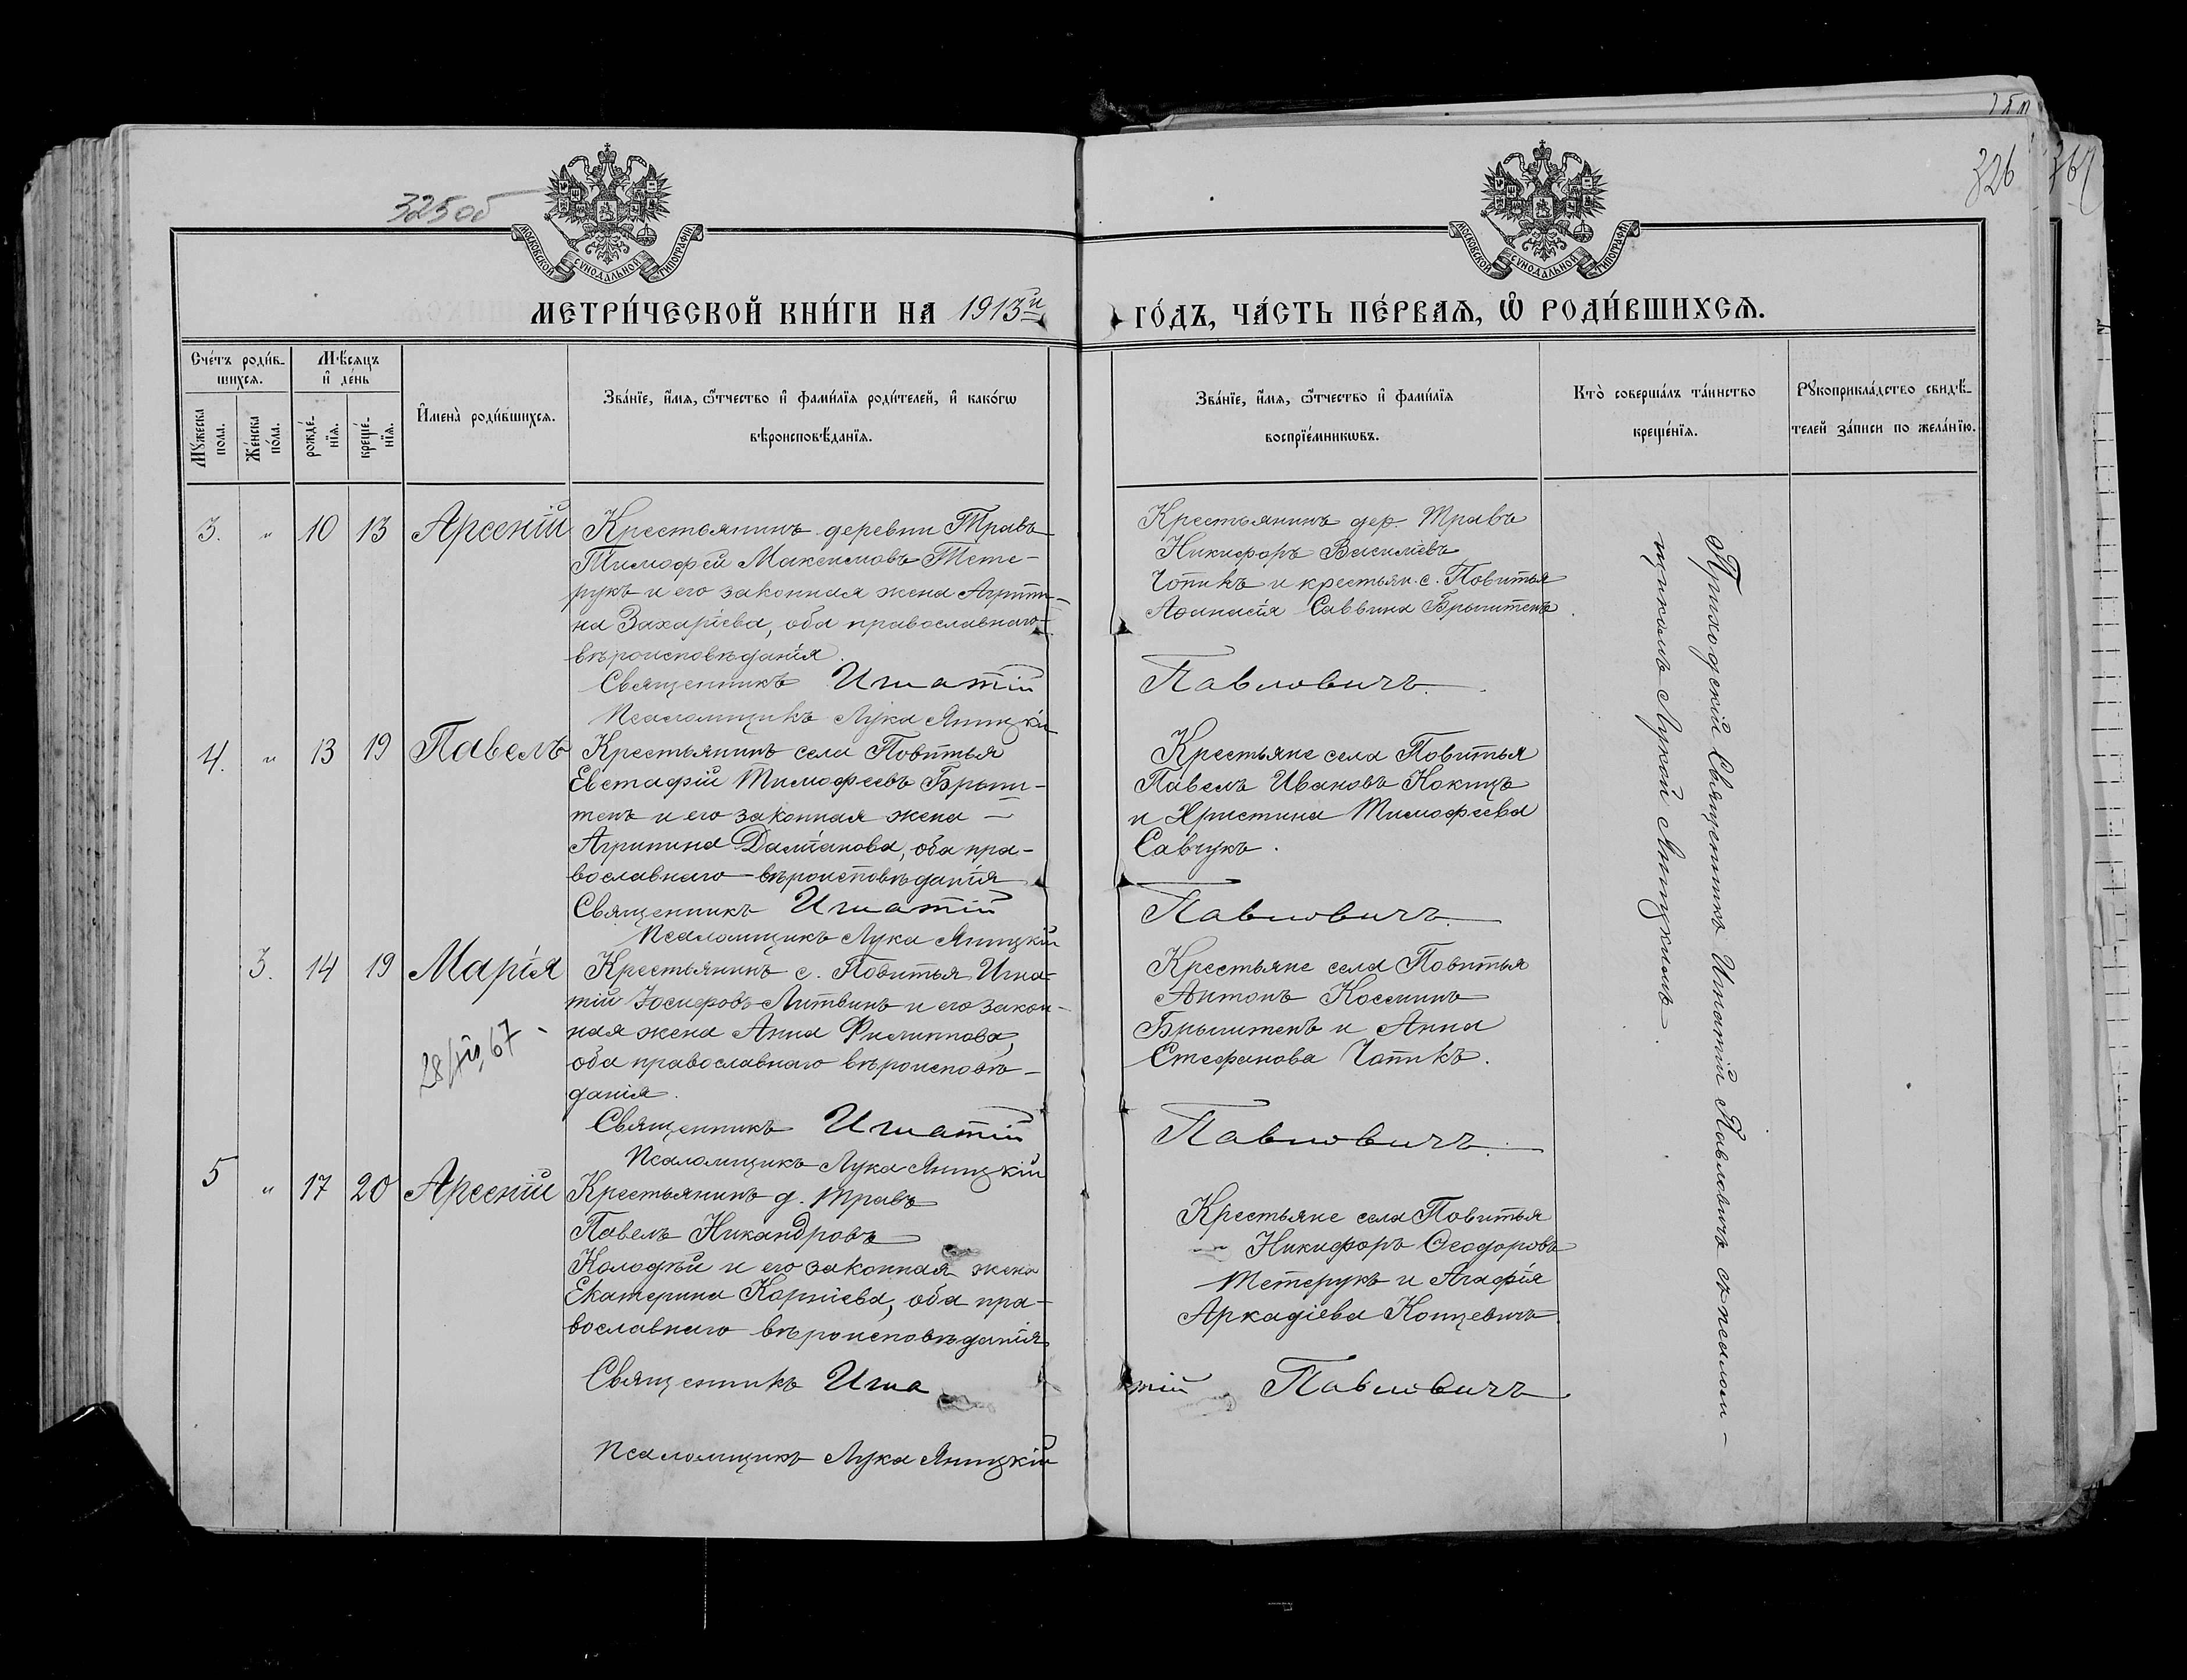 325 об
326
367
МОСКОВСКОЙ СѴНОДАЛЬНОЙ ТИПОГРАФІИ
МОСКОВСКОЙ СѴНОДАЛЬНОЙ ТИПОГРАФІИ
МЕТРИ́ЧЕСКОЙ КНИ́ГИ НА 1913й
ГО́ДЪ, ЧА́СТЬ ПЕ́РВАѦ, Ѽ РОДИ́ВШИХСѦ.
Сче́тъ роди́в-
шихсѧ.
Мѣ́сѧцъ
и҆ де́нь
Мꙋ́жеска
пола.
Же́нска
по́ла.
рожде́-
нїѧ.
креще́-
нїѧ.
И҆мена̀ роди́вшихсѧ.
Зва́нїе, и҆́мѧ, ѻ҆́тчество и҆ фами́лїѧ роди́телей, и҆ како́гѡ
вѣроисповѣ́данїѧ.
Зва́нїе, и҆́мѧ, ѻ҆́тчество и҆ фами́лїѧ
воспрїе́мникѡвъ.
Кто̀ соверша́лъ та́инство
креще́нїѧ.
Рꙋкоприкла́дство свидѣ́-
телей за́писи по жела́нїю.
3. " 10 13 Арсеній
Крестьянинъ деревни Травъ
Тимофей Максимовъ Тете-
рукъ и его законная жена Агрипи-
на Захаріева, оба православнаго
вѣроисповѣданія.
Священникъ Игнатій
Псаломщикъ Лука Яницкій
Крестьянинъ дер. Травъ
Никифоръ Василіевъ
Чопикъ и крестьян. с. Повитья
Аѳанасія Саввина Брыштенъ.
Павловичъ.
4. " 13 19 Павелъ
Крестьянинъ села Повитья
Евстафій Тимофеевъ Брыш-
тенъ и его законная жена
Агрипина Даміанова, оба пра-
вославнаго вѣроисповѣданія
Священникъ Игнатій
Псаломщикъ Лука Яницкій
Крестьяне села Повитья
Павелъ Ивановъ Кокицъ
и Христина Тимофеева
Савчукъ.
Павловичъ.
3. 14 19 Марія
Крестьянинъ с. Повитья Игна-
тій Іосифовъ Литвинъ и его закон-
ная жена Анна Филиппова,
оба православнаго вѣроисповѣ-
данія.
Священникъ Игнатій
Псаломщикъ Лука Яницкій
Крестьяне села Повитья
Антонъ Косминъ
Брыштенъ и Анна
Стефанова Чопикъ.
Павловичъ.
5 " 17 20 Арсеній
Крестьянинъ д. Травъ
Павелъ Никандровъ
Колодѣй и его законная жена
Екатерина Корніева, оба пра-
вославнаго вѣроисповѣданія
Священникъ Игна
Псаломщикъ Лука Яницкій
Крестьяне села Повитья
Никифоръ Ѳеодоровъ
Тетерукъ и Агафія
Аркадіева Концевичъ.
тій Павловичъ.
Приходскій Священникъ Игнатій Павловичъ съ псалом-
щикомъ Лукой Яницкимъ.